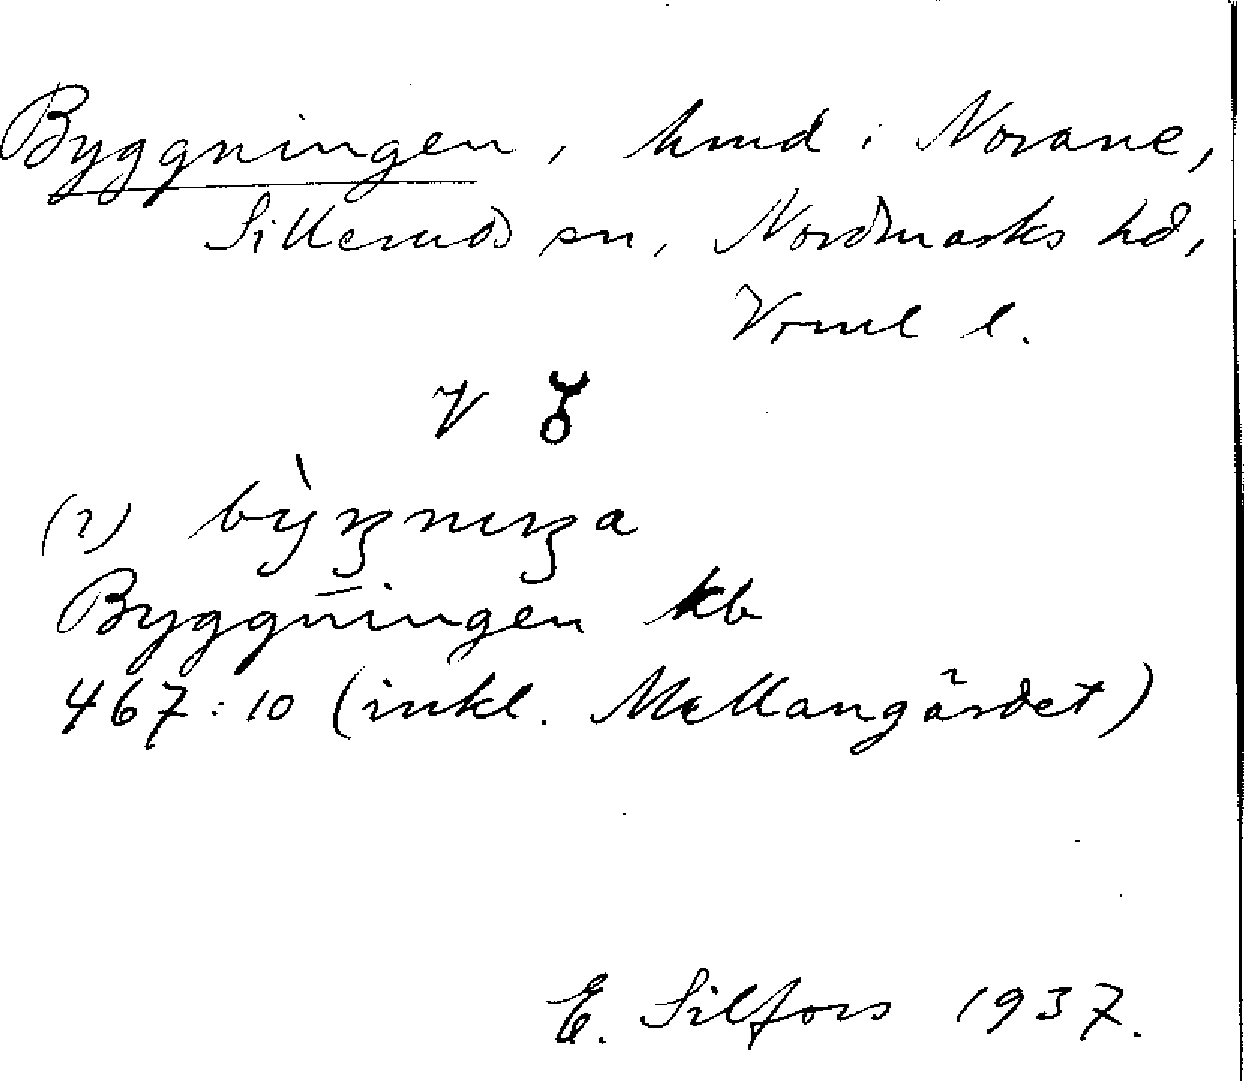 Byggningen, hmd i Norane,
Silleruds sn, Nordmarks hd,
Vrml l.
V
(2) bỳgnıŋa
Byggningen kb
467:10 (inkl. Mellangärdet)
E. Silfors 1937.